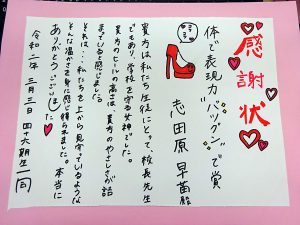 感謝状
体で表現力"バツグン"で賞
志田原 早苗殿
貴方は私たち生徒にとって、校長先生
でもあり、学校を守る女神でした。
貴方のヒールの高さは、貴方のやさしさが詰
まっている感じました。
それは、私たちを上から見守っているような
そんな温かさを身に感じ得られました。本当に
ありがとうございました
令和二年 三月三日 四十六期生一同